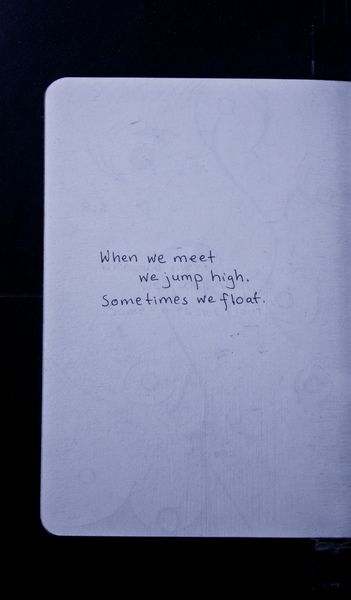 When we meet
we jump high.
Sometimes we float.